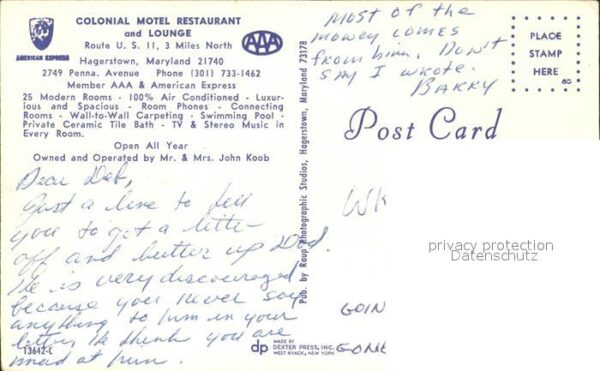 COLONIAL MOTEL RESTAURANT
and LOUNGE
Route U. S. 11, 3 Miles North
Hagerstown, Maryland 21740
2749 Penna. Avenue Phone (301) 733-1462
Member AAA & American Express
25 Modern Rooms - 100% Air Conditioned - Luxur-
ious and Spacious - Room Phones - Connecting
Rooms - Wall-to-Wall Carpeting - Swimming Pool -
Private Ceramic Tile Bath - TV & Stereo Music in
Every Room.
Open All Year
Owned and Operated by Mr. & Mrs. John Koob
AMERICAN EXPRESS
AAA
Dear Deb,
Just a line to tell
you to get a letter
off and butter up Dad.
He is very discouraged
because you never say
anything to him in your
letters, He thinks you are
mad at him.
13642-C
Most of the
money comes
from him. Don't
say I wrote.
BARRY
PLACE
STAMP
HERE
60
Post Card
Pub. by Raup Photographic Studios, Hagerstown, Maryland 73178
WK
privacy protection
Datenschutz
GOIN
GONE
dp
MADE BY
DEXTER PRESS, INC.
WEST NYACK, NEW YORK